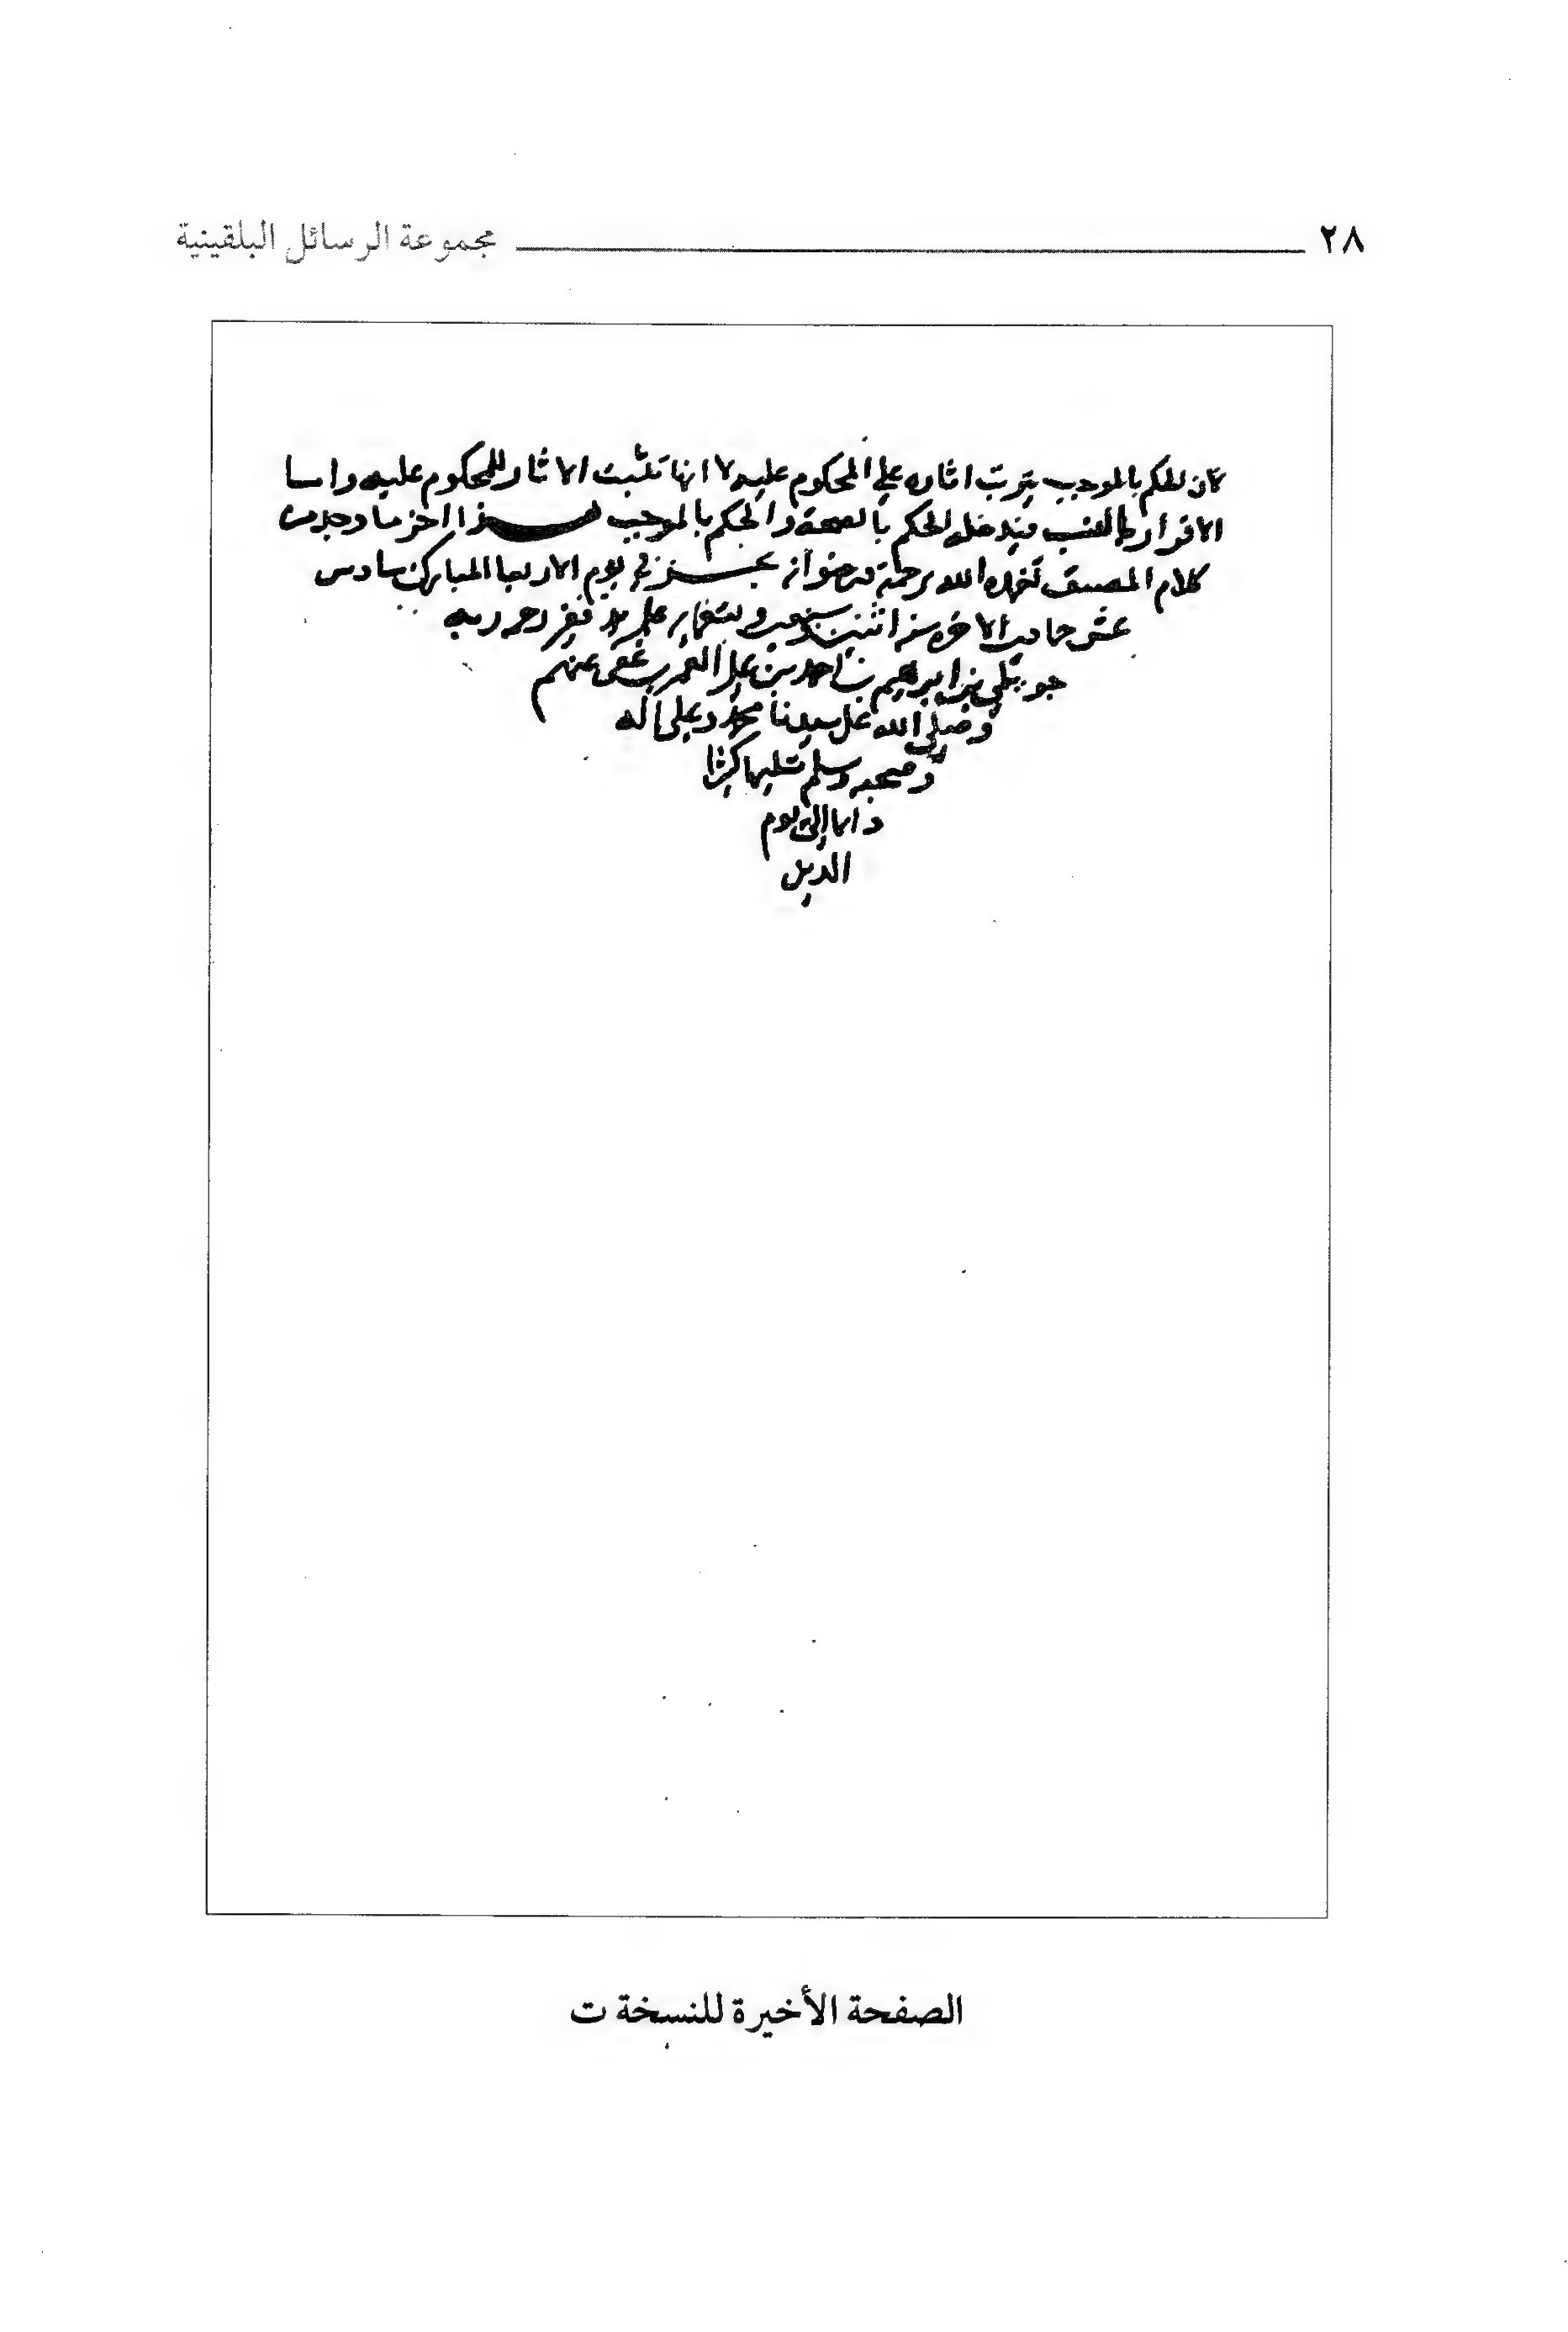 ٢٨ مجموعة الرسائل البلقينية
كان للحكم بالموجب يترتب اثاره علي المحكوم عليه لا انها تثبت الاثار للمحكوم عليه واما
الاقرار بالنسب فيدخله الحكم بالصحة والحكم بالموجب هذا اخر ما وجد من
كلام المصنف تغمده الله برحمته ورضوانه نجز في يوم الاربعا المبارك سادس
عشر جمادي الاخره سنه اثنتين وتسعماية علي يد فقير رحمة ربه
بن ابرهيم بن احمد بن علي عفي عنهم
وصلي الله علي سيدنا محمد وعلي اله
وصحبه وسلم تسليما كثيرا
دايما الي يوم
الدين
الصفحة الأخيرة للنسخة ت